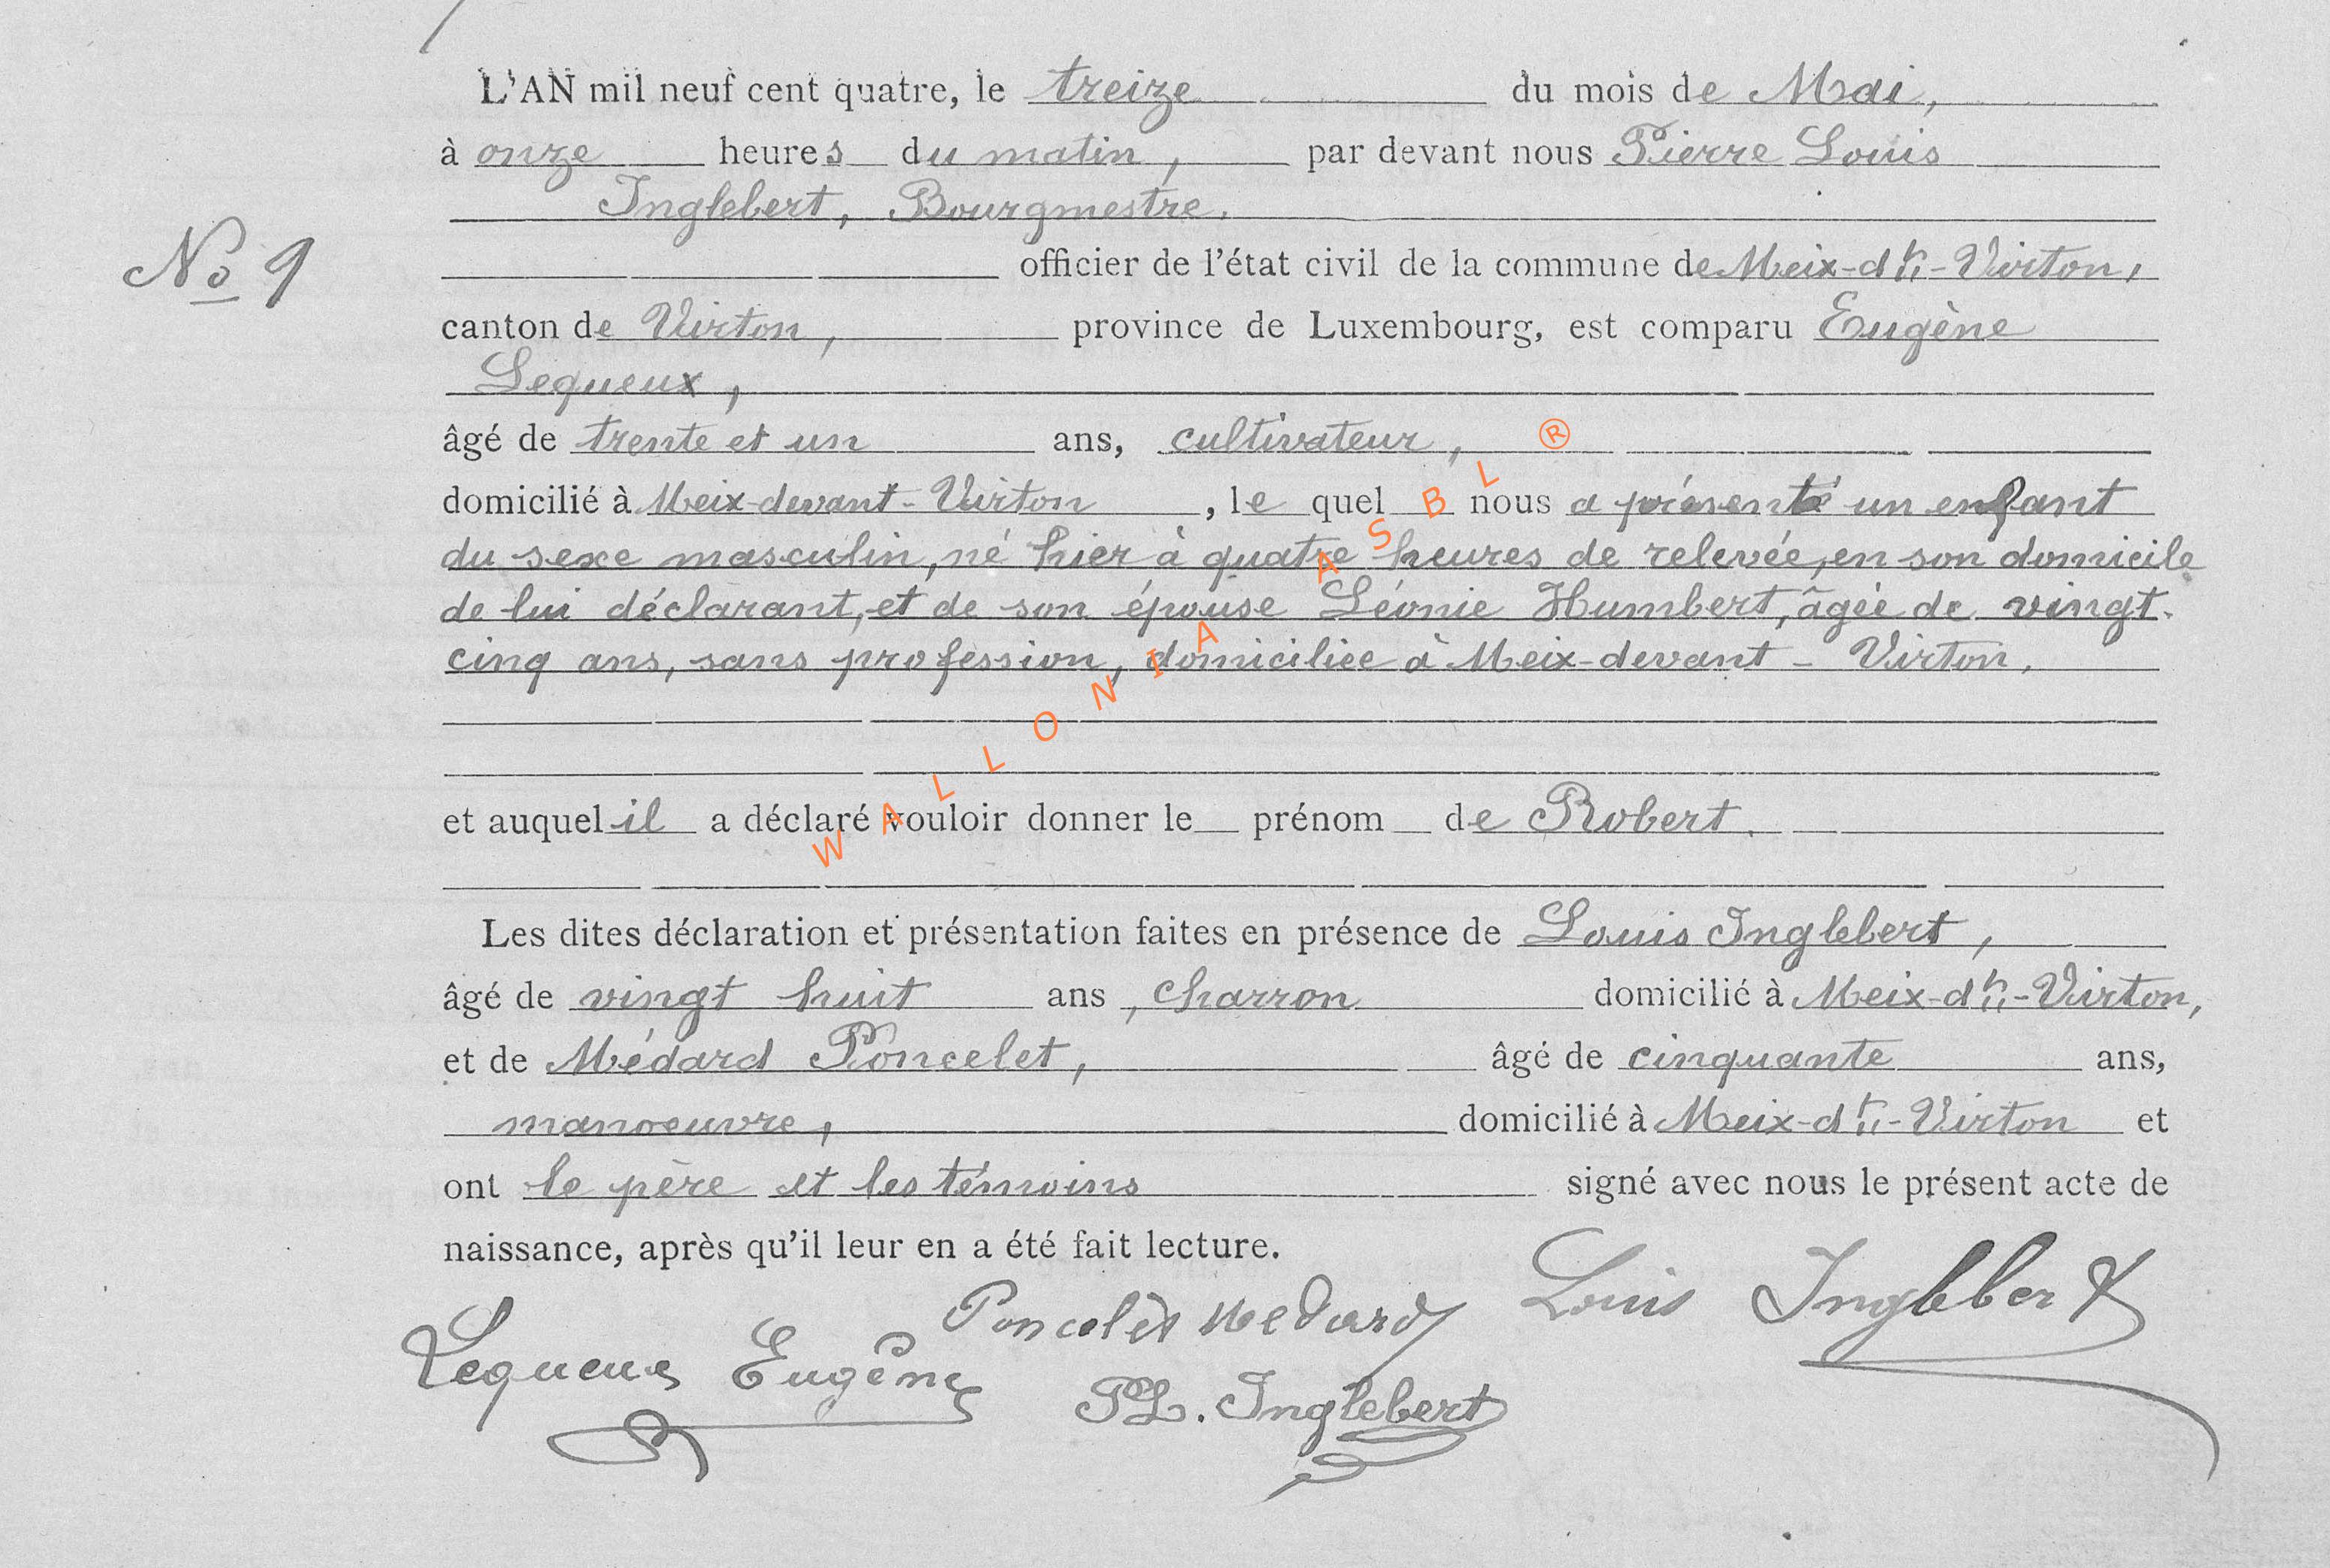 L'AN mil neuf cent quatre, le treize du mois de Mai,
à onze heures du matin, par devant nous Pierre Louis
Inglebert, Bourgmestre,
No 9
officier de l'état civil de la commune de Meix-dt-Virton,
canton de Virton, province de Luxembourg, est comparu Eugène
Lequeux,
âgé de trente et un ans, cultivateur,
domicilié à Meix-devant-Virton, le quel nous a présenté un enfant
du sexe masculin, né hier à quatre heures de relevée, en son domicile
de lui déclarant, et de son épouse Léonie Humbert, âgée de vingt-
cinq ans, sans profession, domiciliée à Meix-devant-Virton,
et auquel il a déclaré vouloir donner le prénom de Robert.
Les dites déclaration et présentation faites en présence de Louis Inglebert,
âgé de vingt huit ans, charron domicilié à Meix-dt-Virton,
et de Médard Poncelet, âgé de cinquante ans,
manoeuvre, domicilié à Meix-dt-Virton et
ont le père et les témoins signé avec nous le présent acte de
naissance, après qu'il leur en a été fait lecture.
Poncelèt Medard Louis Inglebert
Lequeux Eugène PL. Inglebert
WALLONIA ASBL ®